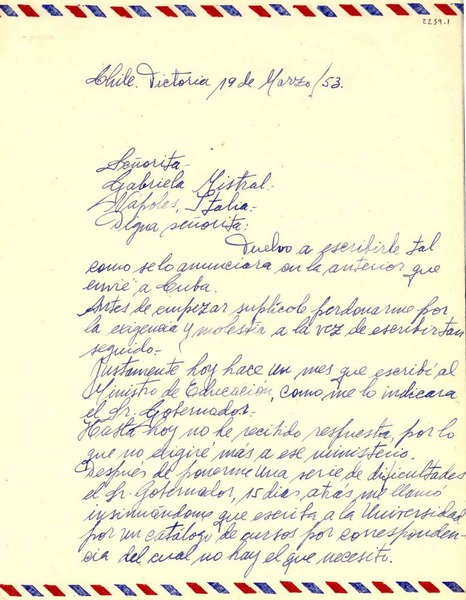 2259.1
Chile. Victoria 19 de Marzo/53.
Señorita-
Gabriela Mistral.
Nápoles, Italia.-
Digna señorita:
Vuelvo a escribirle tal
como se lo anunciara en la anterior que
envié a Cuba.
Antes de empezar suplícole perdonarme por
la exigencia y molestia a la vez de escribir tan
seguido.-
Justamente hoy hace un mes que escribí al
Ministro de Educación, como me lo indicara
el Sr. Gobernador.-
Hasta hoy no he recibido respuesta, por lo
que no exigiré más a ese ministerio.
Después de ponerme una serie de dificultades
el Sr. Gobernador, 15 días atrás me llamó
insinuándome que escriba a la Universidad
por un catálogo de cursos por corresponden-
cia del cual no hay el que necesito.